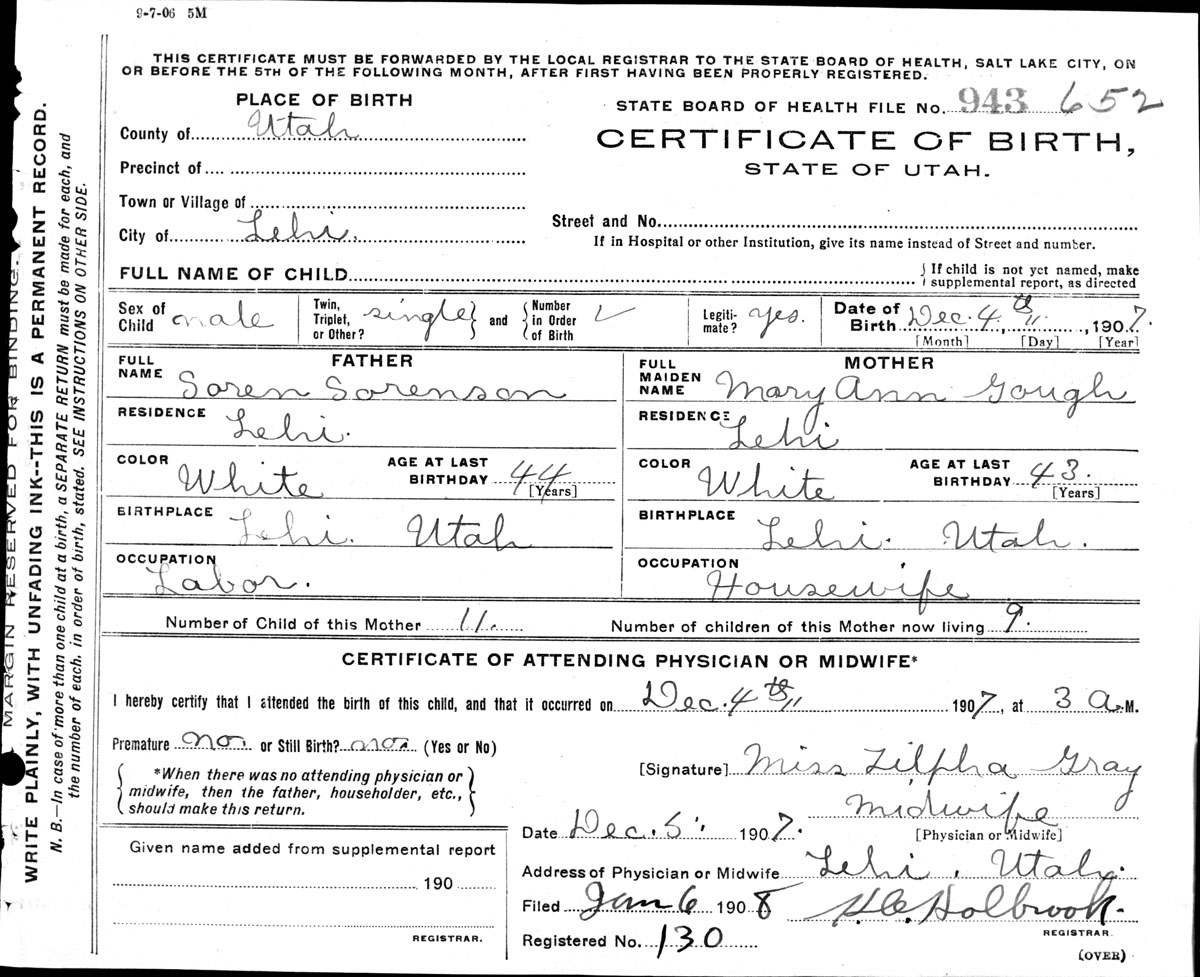 9-7-06 5M
THIS CERTIFICATE MUST BE FORWARDED BY THE LOCAL REGISTRAR TO THE STATE BOARD OF HEALTH, SALT LAKE CITY, ON
OR BEFORE THE 5TH OF THE FOLLOWING MONTH, AFTER FIRST HAVING BEEN PROPERLY REGISTERED.
PLACE OF BIRTH
STATE BOARD OF HEALTH FILE No. 943 652
County of Utah
CERTIFICATE OF BIRTH,
STATE OF UTAH.
Precinct of
Town or Village of
Street and No.
City of Lehi.
If in Hospital or other Institution, give its name instead of Street and number.
FULL NAME OF CHILD { If child is not yet named, make
supplemental report, as directed
Sex of Child male Twin, Triplet, or Other? single and Number in Order of Birth Legiti-mate? Yes. Date of Birth Dec. 4th, 1907.
[Month] [Day] [Year]
FATHER MOTHER
FULL NAME Soren Sorenson FULL MAIDEN NAME Mary Ann Gough
RESIDENCE Lehi. RESIDENCE Lehi
COLOR White AGE AT LAST BIRTHDAY 44 [Years] COLOR White AGE AT LAST BIRTHDAY 43. [Years]
BIRTHPLACE Lehi. Utah BIRTHPLACE Lehi. Utah.
OCCUPATION Labor. OCCUPATION Housewife
Number of Child of this Mother 11. Number of children of this Mother now living 9.
CERTIFICATE OF ATTENDING PHYSICIAN OR MIDWIFE*
I hereby certify that I attended the birth of this child, and that it occurred on Dec. 4th 1907, at 3 a.M.
Premature no. or Still Birth? no. (Yes or No)
*When there was no attending physician or
midwife, then the father, householder, etc.,
should make this return.
[Signature] Miss Zilpha Gray
Midwife
Date Dec. 5. 1907. [Physician or Midwife]
Given name added from supplemental report
190
REGISTRAR.
Address of Physician or Midwife Lehi, Utah.
Filed Jan 6 1908 Holbrook.
REGISTRAR
Registered No. 130
(OVER)
MARGIN RESERVED FOR BINDING.
WRITE PLAINLY, WITH UNFADING INK--THIS IS A PERMANENT RECORD.
N. B.—In case of more than one child at a birth, a SEPARATE RETURN must be made for each, and
the number of each, in order of birth, stated. SEE INSTRUCTIONS ON OTHER SIDE.